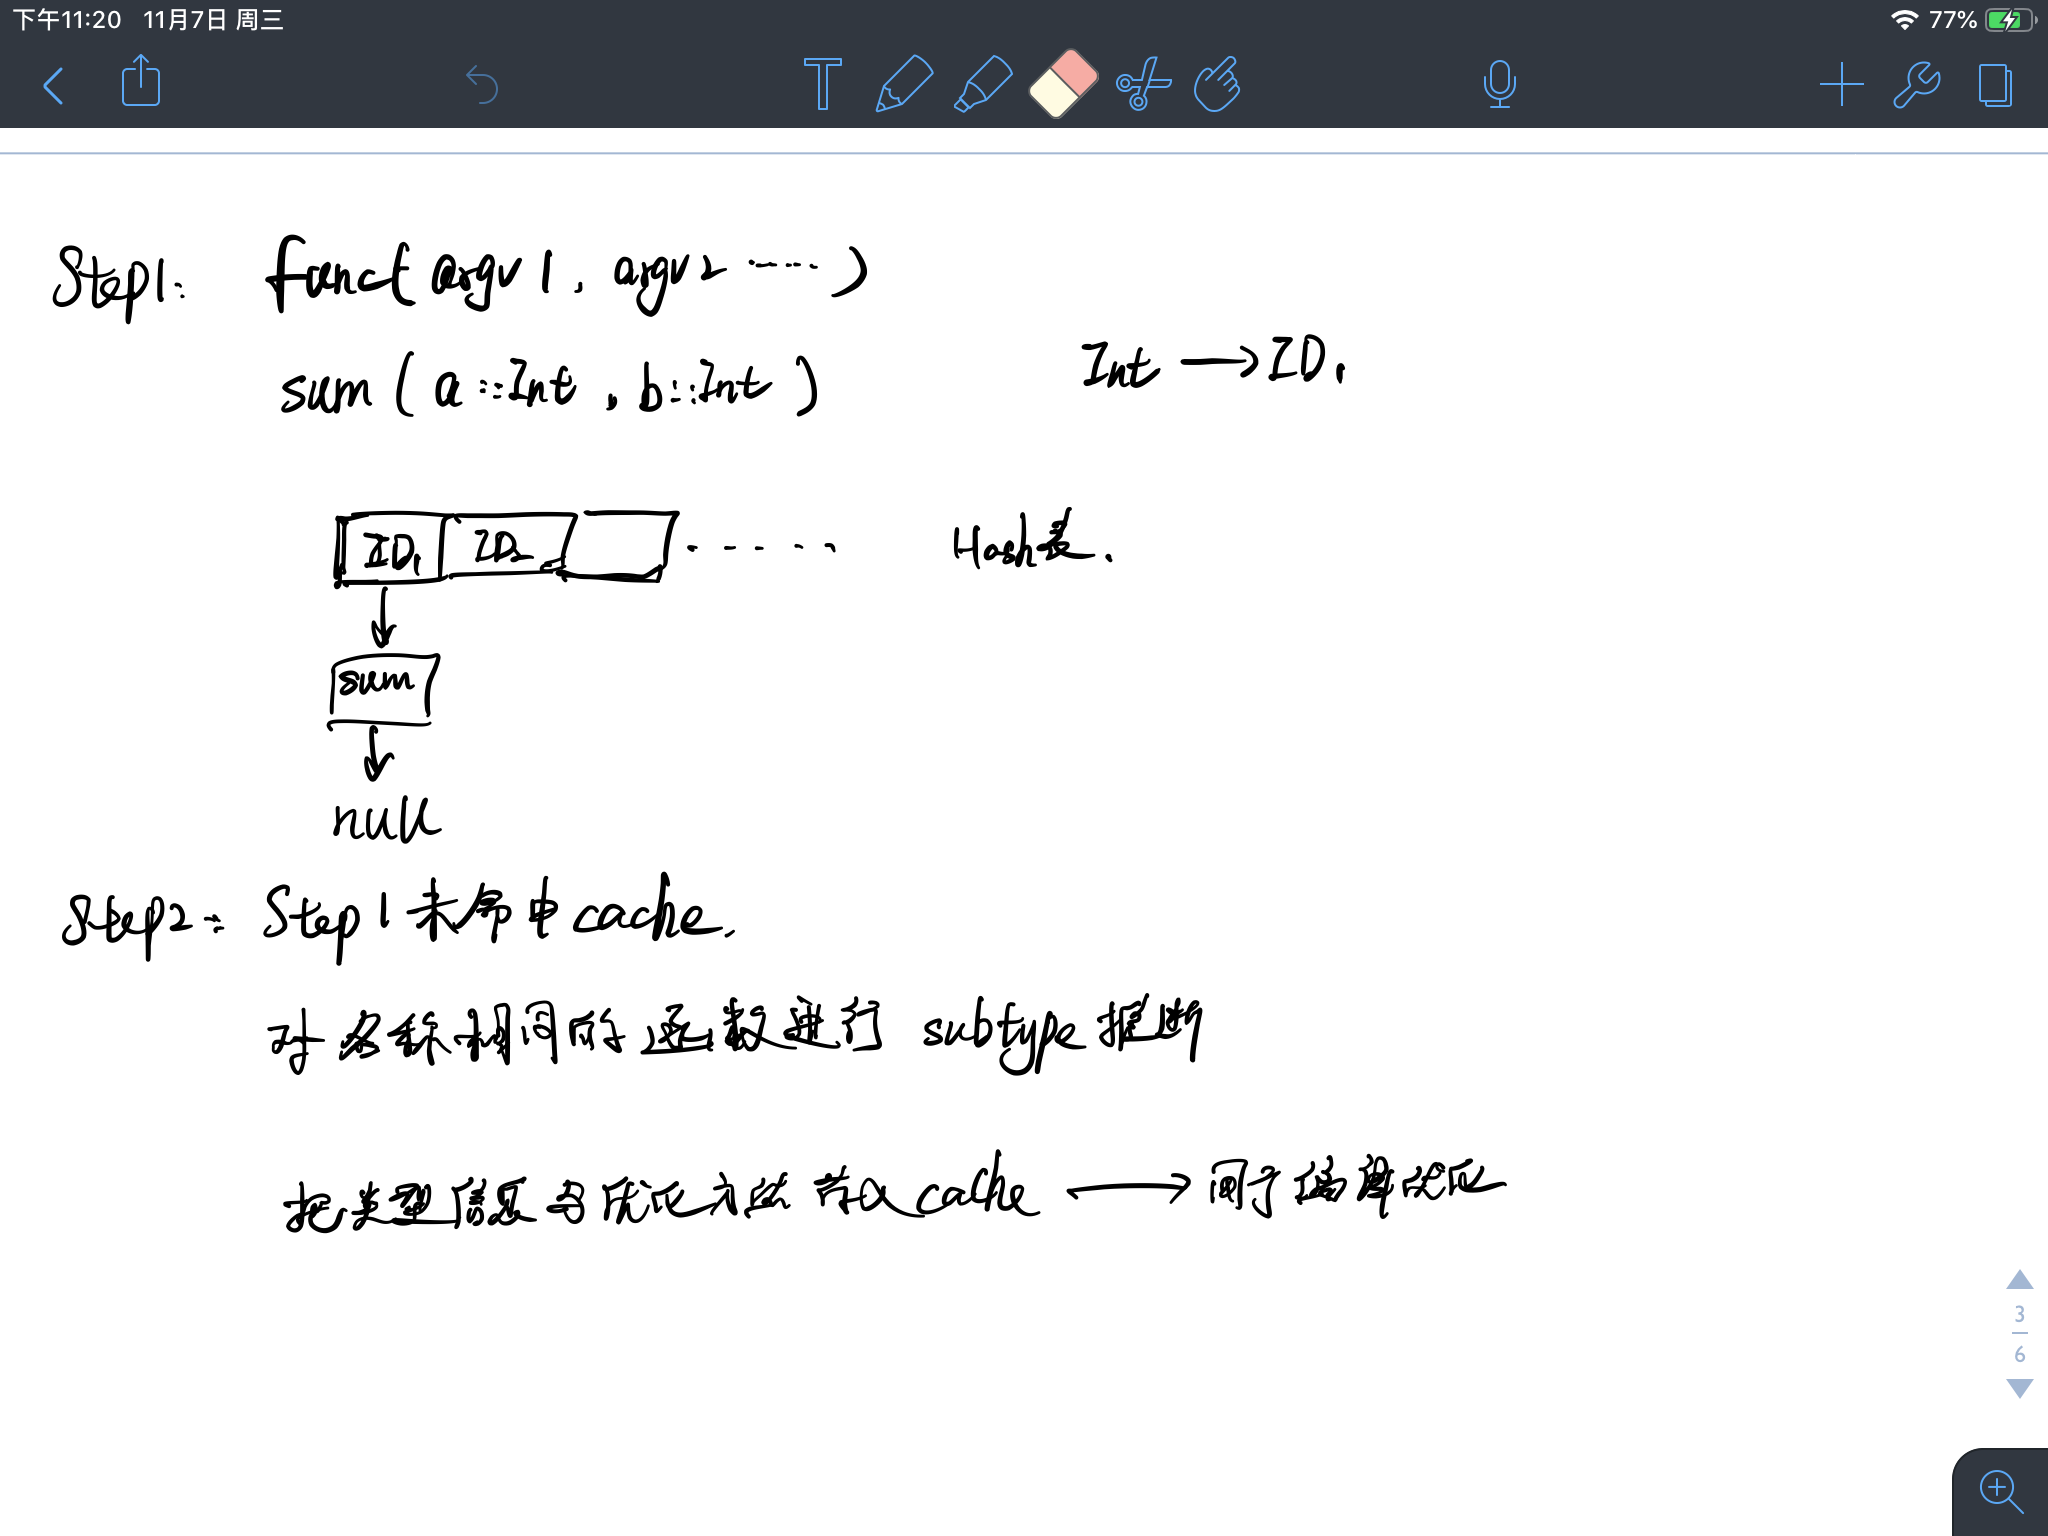 下午11:20 11月7日 周三 77%
Step1: funct argv1, argv2 ······)
sum ( a::Int , b::Int )
Int → ID1
ID1 ID2 ······ Hash表.
sum
null
Step2: Step1未命中cache.
对名称相同的函数进行 subtype推断
把类型信息与优化方法 存入cache → 用于编译优化
3
6